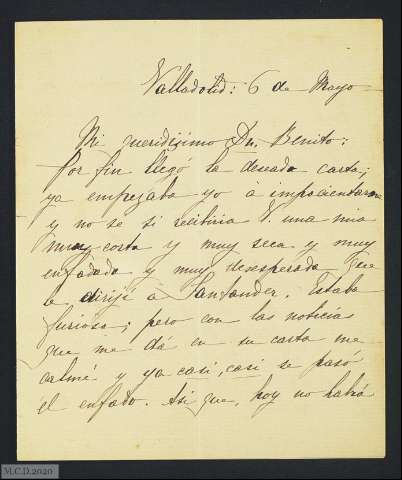 Valladolid: 6 de Mayo
Mi queridisimo Dn. Benito:
Por fin llegó la deseada carta;
ya empezaba yo á impacientarme
y no se si recibiria V. una mia
muy corta y muy seca y muy
enfadada y muy desesperada que
le dirijí á Santander. Estaba
furiosa; pero con las noticias
que me dá en su carta me
calmé y ya casi, casi se pasó
el enfado. Asi que, hoy no habrá
M.C.D. 2020